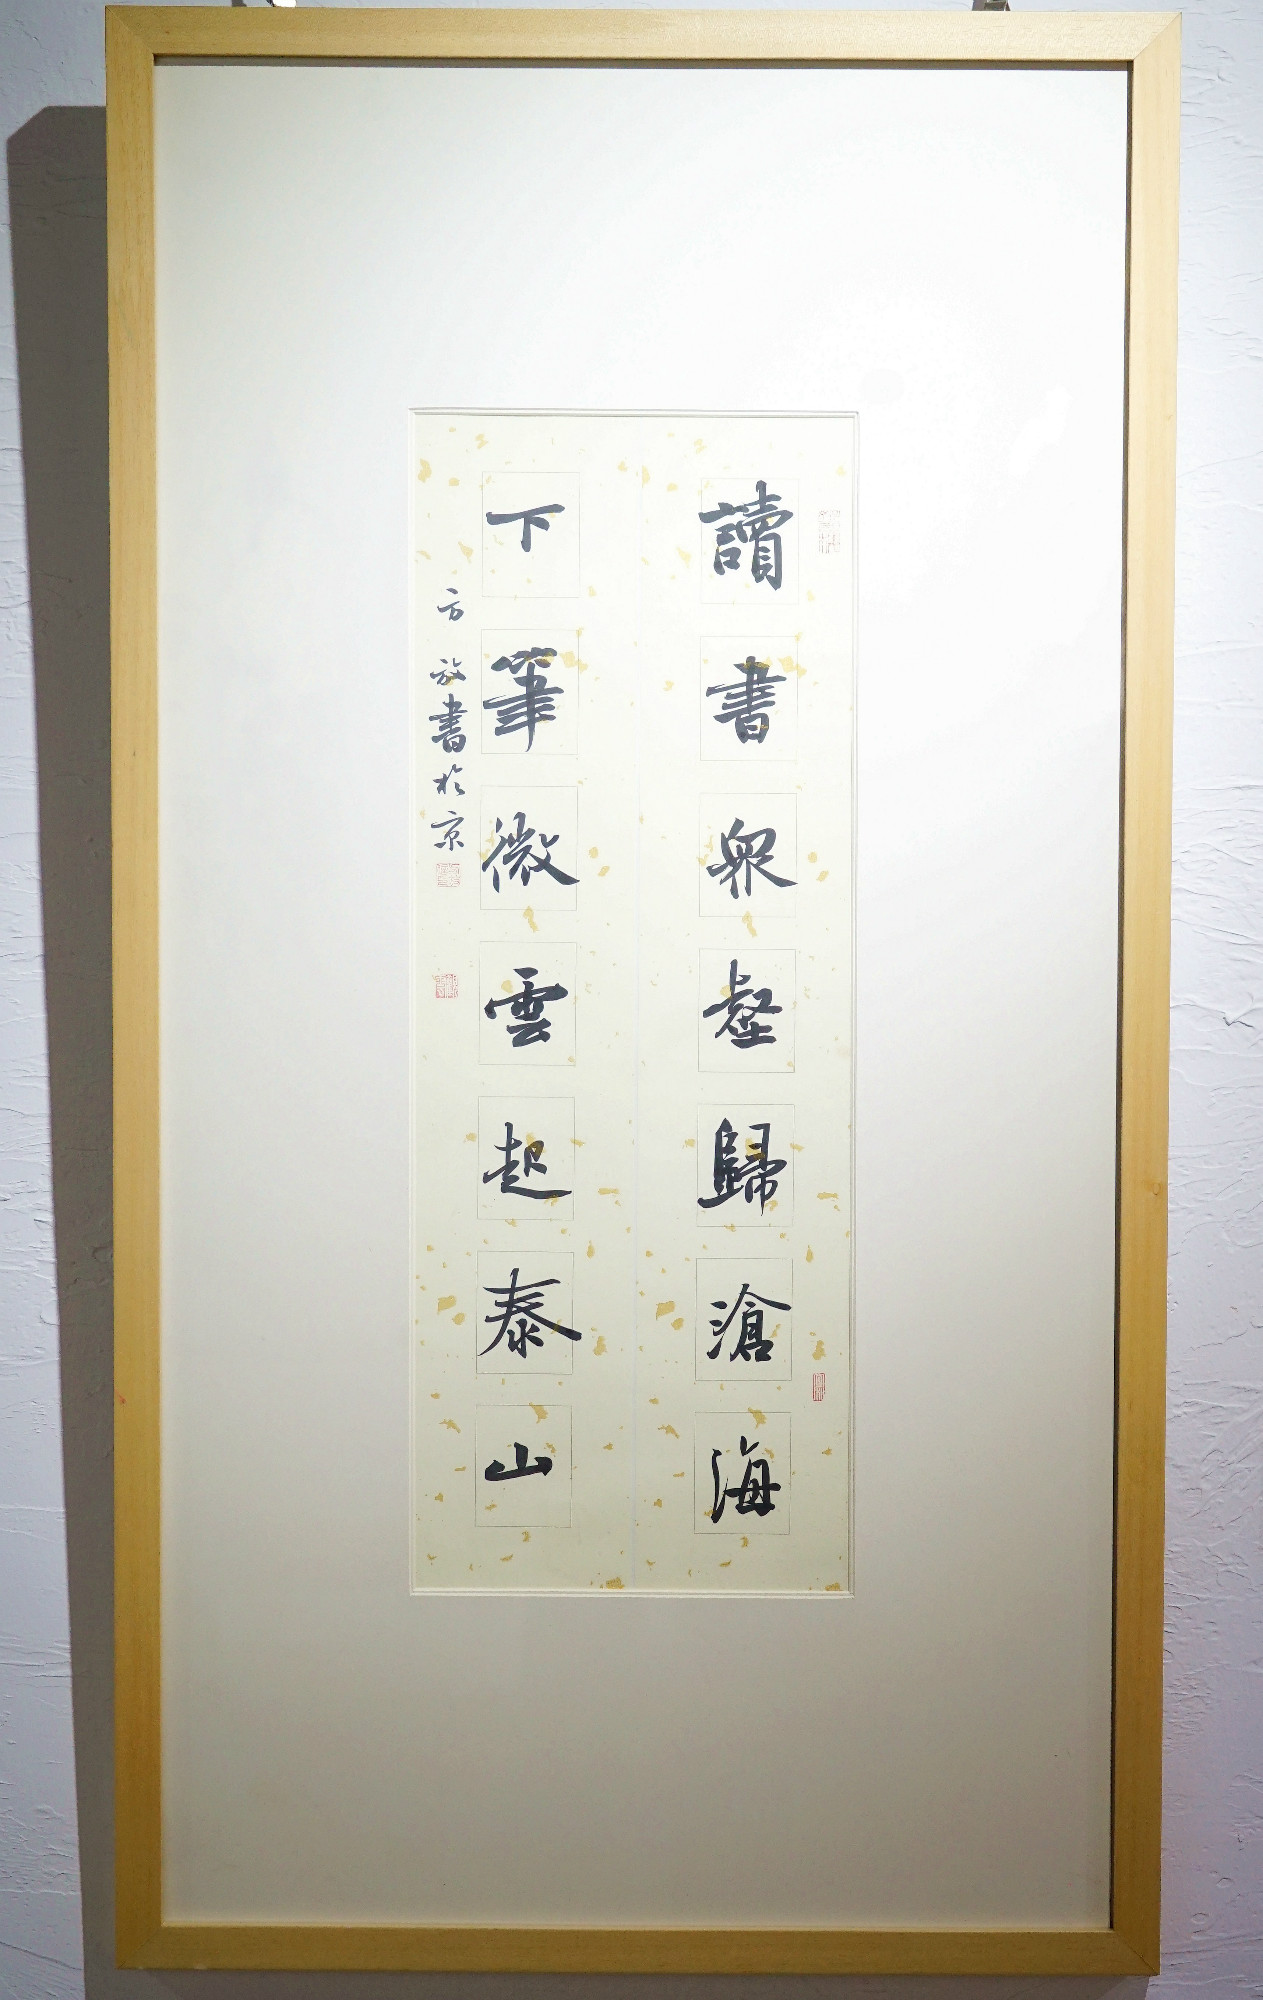 讀書眾壑歸滄海
下筆微雲起泰山
方放書於京